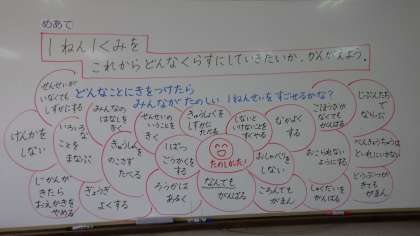 めあて
1ねん1くみを
これからどんなくらすにしていきたいか、かんがえよう。
どんなことにきをつけたら
みんながたのしい1ねんせいをすごせるかな？
せんせいが
いなくても
しずかにする
みんなの
はなしを
きく
せんせいの
いうことを
きく
きゅうしょくを
しずかに
たべる
しないと
いけないことを
すぐやる
なかよく
する
ごほうびが
なくても
がんばる
じぶんたち
でならぶ
けんかを
しない
いろいろ
なことを
まなぶ
きゅうしょくを
のこさず
たべる
1ぱつ
ごうかくを
する
たのしかった!
おしゃべりを
しない
おこられない
ようにする
べんきょうちゅうは
といれにいかない
じかんが
きたら
おえかきを
やめる
ぎょうぎ
よくする
ろうかは
あるく
なんでも
がんばる
ころんでも
がまん
しゅくだいを
がんばる
どうぶつが
きても
がまん